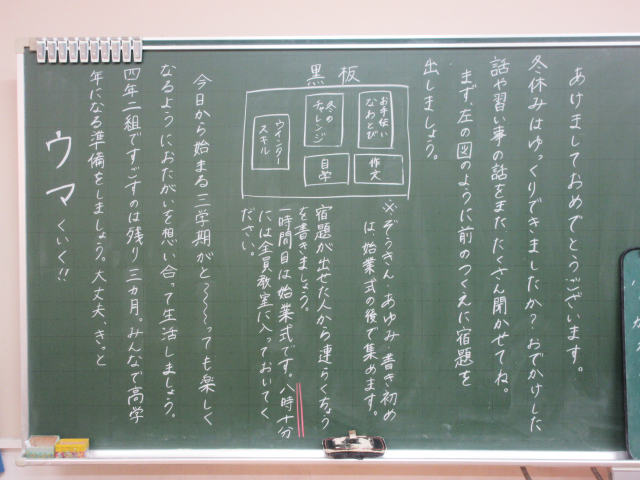 あけましておめでとうございます。
冬休みはゆっくりできましたか？おでかけした
話や習い事の話をまた、たくさん聞かせてね。
まず、左の図のように前のつくえに宿題を
出しましょう。
黒板
お手伝い
なわとび
作文
冬の
チャレンジ
自学
ウインター
スキル
※ぞうきん・あゆみ・書き初め
は、始業式の後で集めます。
宿題が出せた人から連らくちょう
を書きましょう。
一時間目は始業式です。八時十分
には全員教室に入っておいてく
ださい。
今日から始まる三学期がと～～～っても楽しく
なるようにおたがいを想い合って生活しましょう。
四年二組ですごすのは残り三カ月。みんなで高学
年になる準備をしましょう。大丈夫、きっと
ウマくいく!!